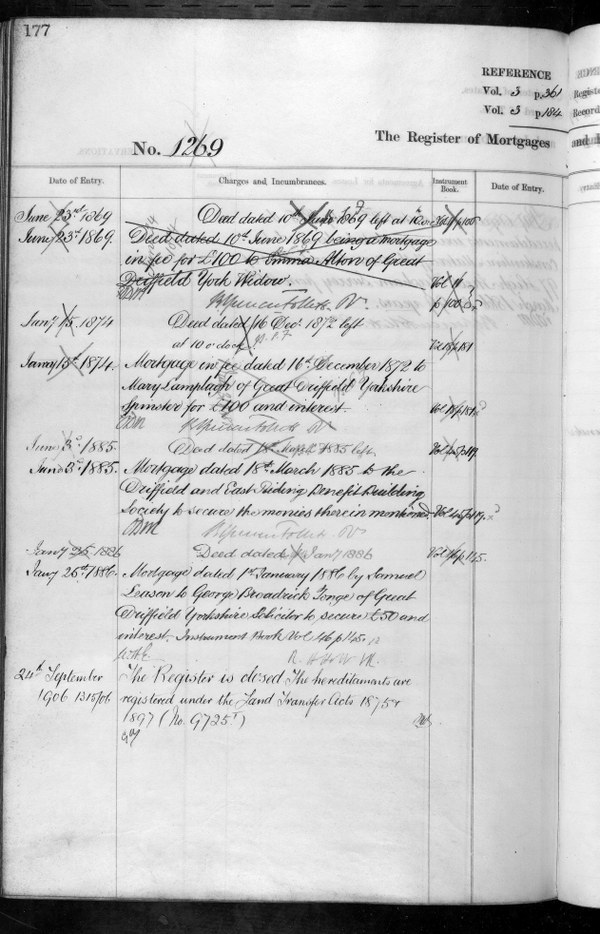 177
REFERENCE
Vol. 3 p. 361
Vol. 3 p. 184
The Register of Mortgages and
No. 1269
Date of Entry.
Charges and Incumbrances.
Instrument Book.
Date of Entry.
June 23rd 1869 Deed dated 10th June 1869 left at
June 23d 1869. Deed dated 10th June 1869 being a mortgage
in fee for £100 to Emma Alton of Great
Driffield York Widow. Vol
p 100
Jany 15. 1874 Deed dated 16 Decr 1872 left
at 10 o'clock
January 15th 1874. Mortgage in fee dated 16th December 1872 to
Mary Lamplugh of Great Driffield Yorkshire
Spinster for £100 and interest.
June 3d 1885. Deed dated 18th March 1885 left
June 3d 1885. Mortgage dated 18th March 1885 to the
Driffield and East Riding Benefit Building
Society to secure the monies therein mentioned.
Jany 26 1886 Deed dated Jany 1886
Jany 26th 1886. Mortgage dated 1st January 1886 by Samuel
Leason to George Broadrick Tonge of Great
Driffield Yorkshire Solicitor to secure £50 and
interest. Instrument Book Vol 46 p 145.
24th September The Register is closed The hereditaments are
1906 registered under the Land Transfer Acts 1875 &
1897 (No. 9725)